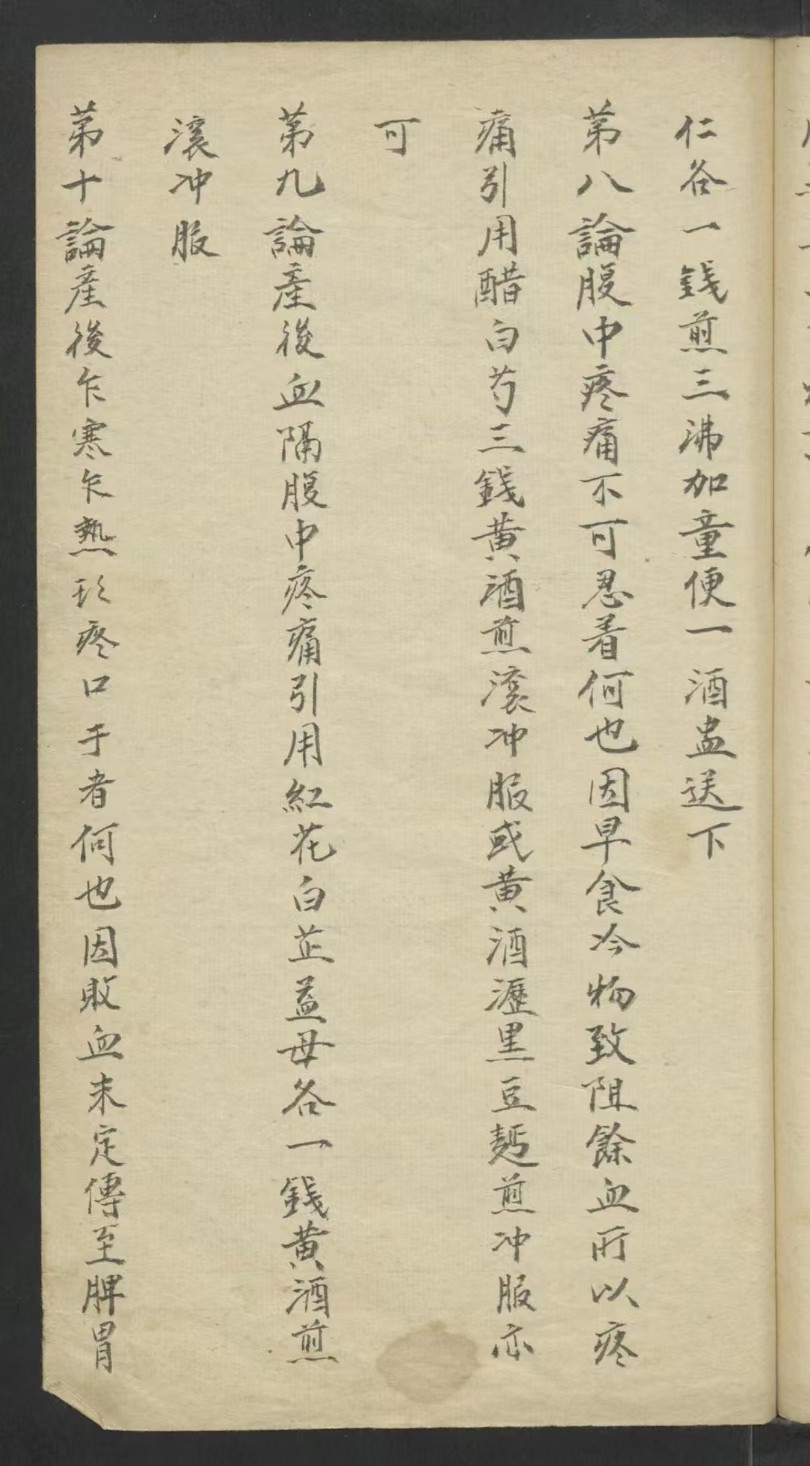 仁各一錢煎三沸加童便一酒盅送下
第八論腹中疼痛不可忍着何也因早食冷物致阻餘血所以疼
痛引用醋白芍三錢黄酒煎滚冲服或黄酒瀝黒豆麪煎冲服亦
可
第九論產後血隔腹中疼痛引用紅花白芷益母各一錢黄酒煎
滚冲服
第十論產後乍寒乍熱疼口于者何也因敗血未定傳至脾胃